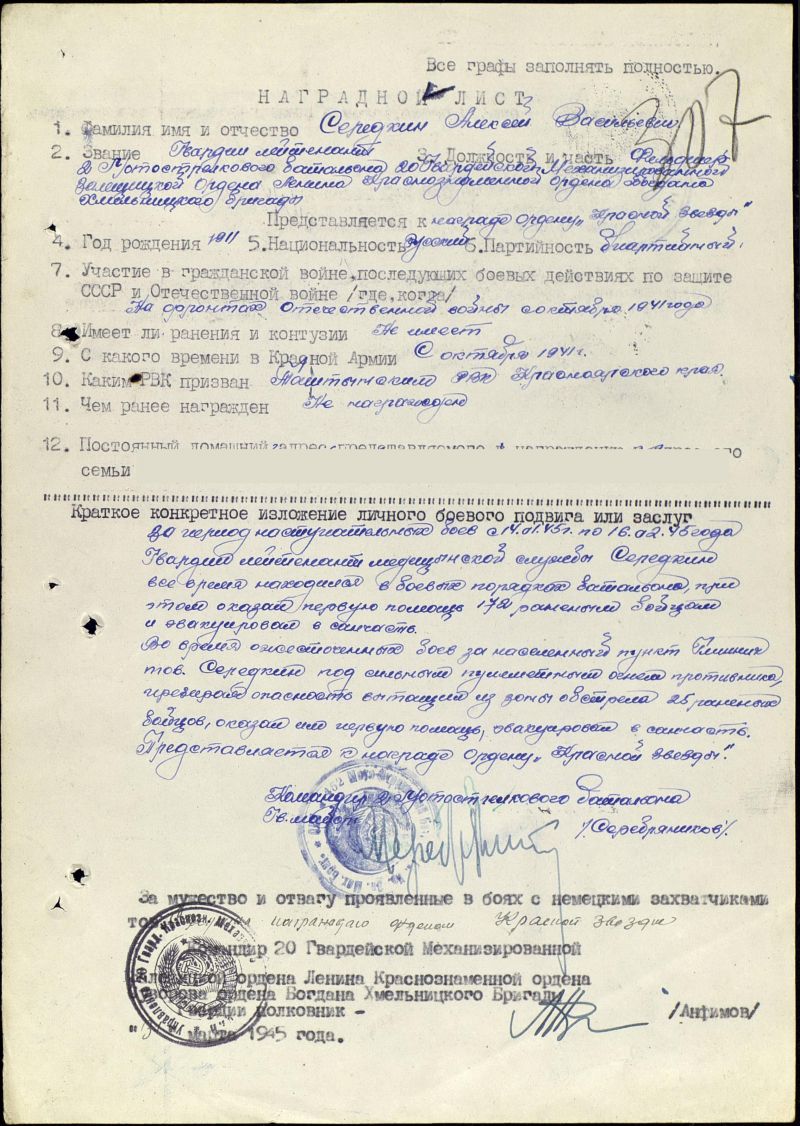 Все графы заполнять полностью.
НАГРАДНОЙ ЛИСТ
307
1. Фамилия имя и отчество Середкин Алексей Васильевич
2. Звание Гвардии лейтенант 3. Должность и часть Фельдшер
2 Мотострелкового батальона 20 Гвардейской Механизированной
Залещицкой Ордена Ленина Краснознаменной Ордена Богдана
Хмельницкого бригады
Представляется к награде Ордену „Красной Звезды"
4. Год рождения 1911 5. Национальность русский 6. Партийность Б/партийный.
7. Участие в гражданской войне, последующих боевых действиях по защите
СССР и Отечественной войне /где, когда/
На фронтах Отечественной войны с октября 1941 года
8. Имеет ли ранения и контузии Не имеет
9. С какого времени в Красной Армии С октября 1941 г.
10. Каким РВК призван Таштыпским РВК Красноярского края
11. Чем ранее награжден Не награжден
12. Постоянный домашний адрес представляемого к награждению и адрес его
семьи
Краткое конкретное изложение личного боевого подвига или заслуг
За период наступательных боев с 14.01.45 г. по 16.02.45 года
Гвардии лейтенант медицынской службы Середкин
все время находился в боевых порядках батальона, при
этом оказал первую помощь 172 раненым бойцам
и эвакуировал в санчасть.
Во время ожесточенных боев за населенный пункт
тов. Середкин под сильным пулеметным огнем противника,
презирая опасность вытащил из зоны обстрела 25 раненых
бойцов, оказал им первую помощь, эвакуировал в санчасть.
Представляется к награде Ордену „Красной Звезды".
Командир 2 Мотострелкового батальона
Гв. майор /Серебряников/.
За мужество и отвагу проявленные в боях с немецкими захватчиками
тов. награждаю орденом Красной Звезды
Командир 20 Гвардейской Механизированной
ордена Ленина Краснознаменной ордена
Суворова ордена Богдана Хмельницкого Бригады
Гвардии Полковник - /Анфимов/
марта 1945 года.